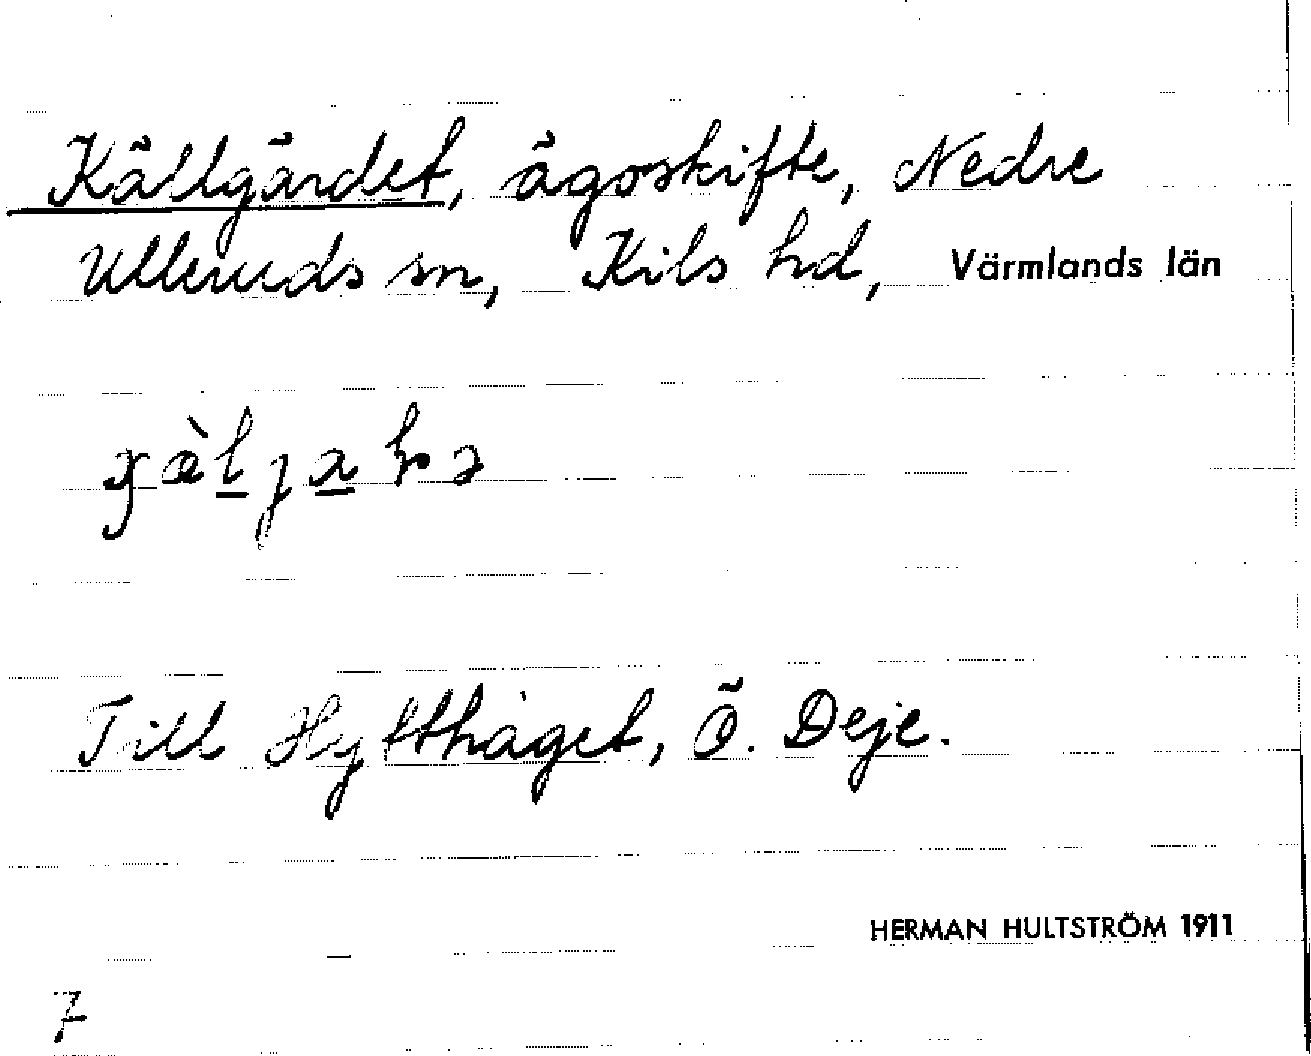 Källgärdet, ägoskifte, Nedre
Ulleruds sn, Kils hd, Värmlands län
Till Hytthaget, Ö. Deje.
HERMAN HULTSTRÖM 1911
7